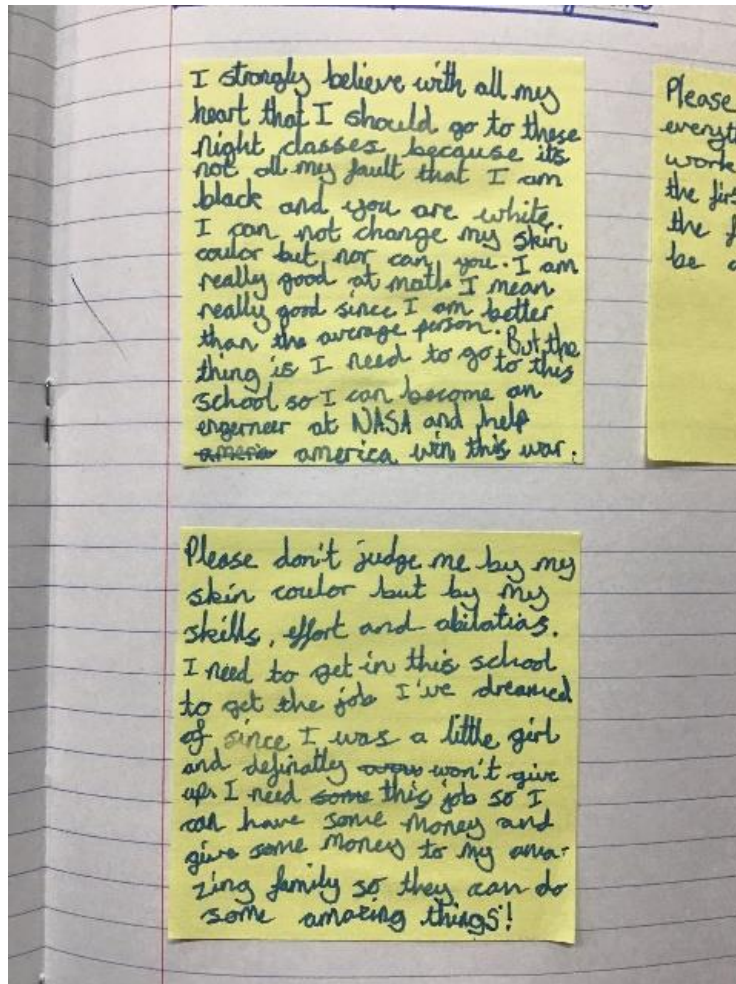 I strongly believe with all my
heart that I should go to these
night classes because its
not all my fault that I am
black and you are white.
I can not change my skin
coulor but, nor can you. I am
really good at math. I mean
really good since I am better
than the average person. But the
thing is I need to go to this
school so I can become an
engerneer at NASA and help
america win this war.
Please don't judge me by my
skin coulor but by my
skills, effort and abilatias.
I need to get in this school
to get the job I've dreamed
of since I was a little girl
and definatly won't give
up. I need some this job so I
can have some money and
give some money to my ama-
zing family so they can do
some amazing things!
Please
everyt
work
the firs
the f
be a